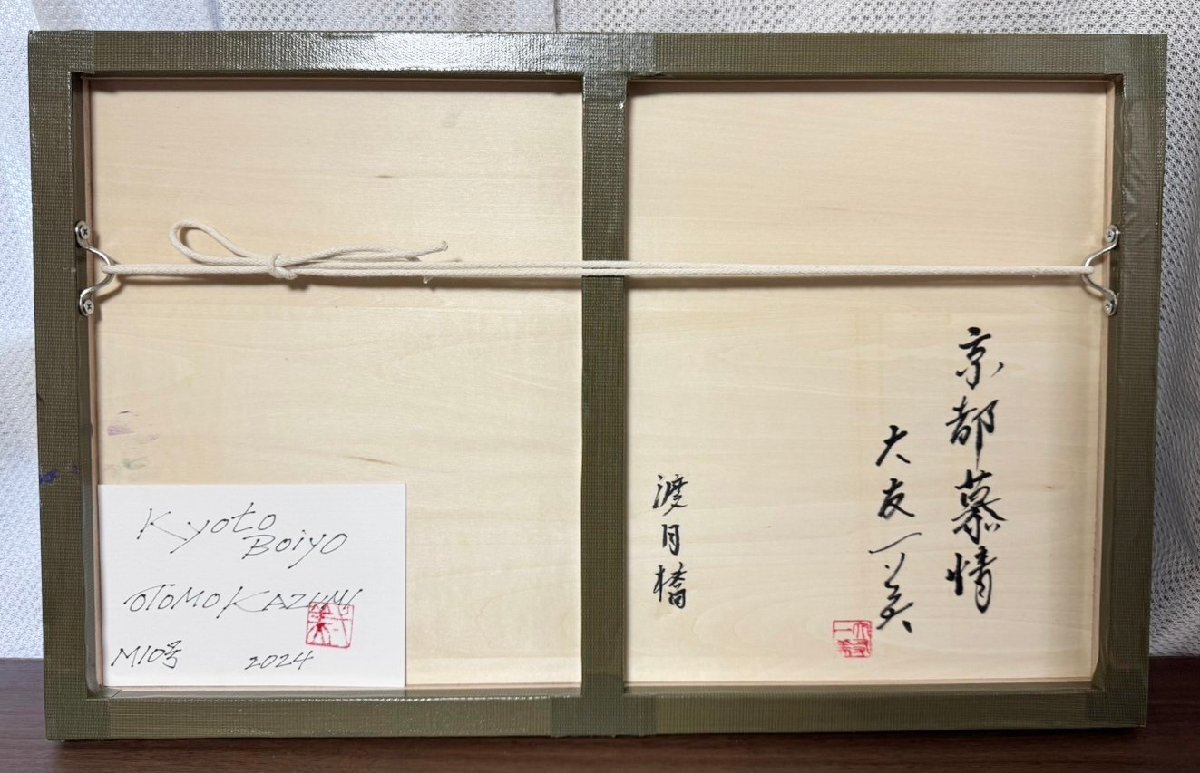 京都慕情
大友一美
渡月橋
Kyoto
Boiyo
OTOMO KAZUMI
M10号 2024